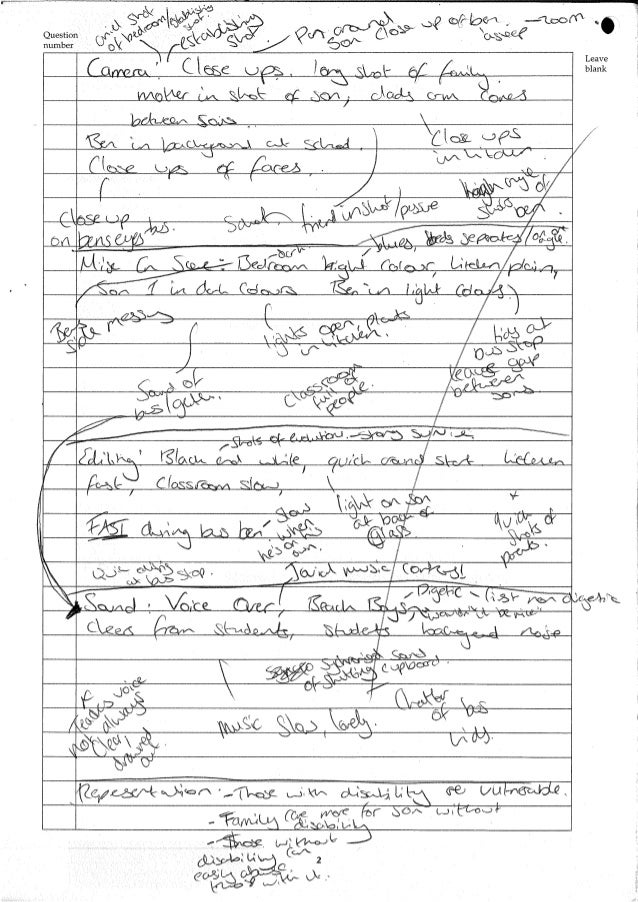 Question
number
Leave
blank
of bedroom/establishing shot.
establishing
shot.
Pan around room
son close up of ben.
asleep
Camera: Close ups. long shot of family
mother in shot of son, dads arm comes
between sons
Ben in background at school.
Close ups of faces.
Close ups
in kitchen
Close up
on bens eyes bus.
School friend in shot/
high angle of
shots
ben
blues, separates/on own
angle.
dark
Mise En Scene: Bedroom bright colour, kitchen/plain,
Son 1 in dark colours Ben in light colours)
Bens
side messy
lights open, plants
in kitchen.
Sound of
bus/
Classroom
full of
people.
kids at
bus stop
leave gap
between
sons
- Shots of evolution - strong survive
Editing: Black and white, quick around start. kitchen
fast, Classroom slow,
FAST during bus ben - slow
when
he's on his
own.
light on son
at back of
Glass
quick
shots of
parents.
Quick editing
at bus stop.
Jovial music contrast
Sound: Voice Over, Beach Boys,
Digetic - first non digestic
wouldn't be nice
Cheers from students, students background noise
Synchronised sound
of shutting cupboard.
Teachers voice
not always
clear,
drawed
out.
music slow, lovely.
Chatter
of bus
kids.
Representation: - Those with disability are vulnerable.
- Family care more for son without
disability
- Those without
disability can
easily abuse
those with it.
2